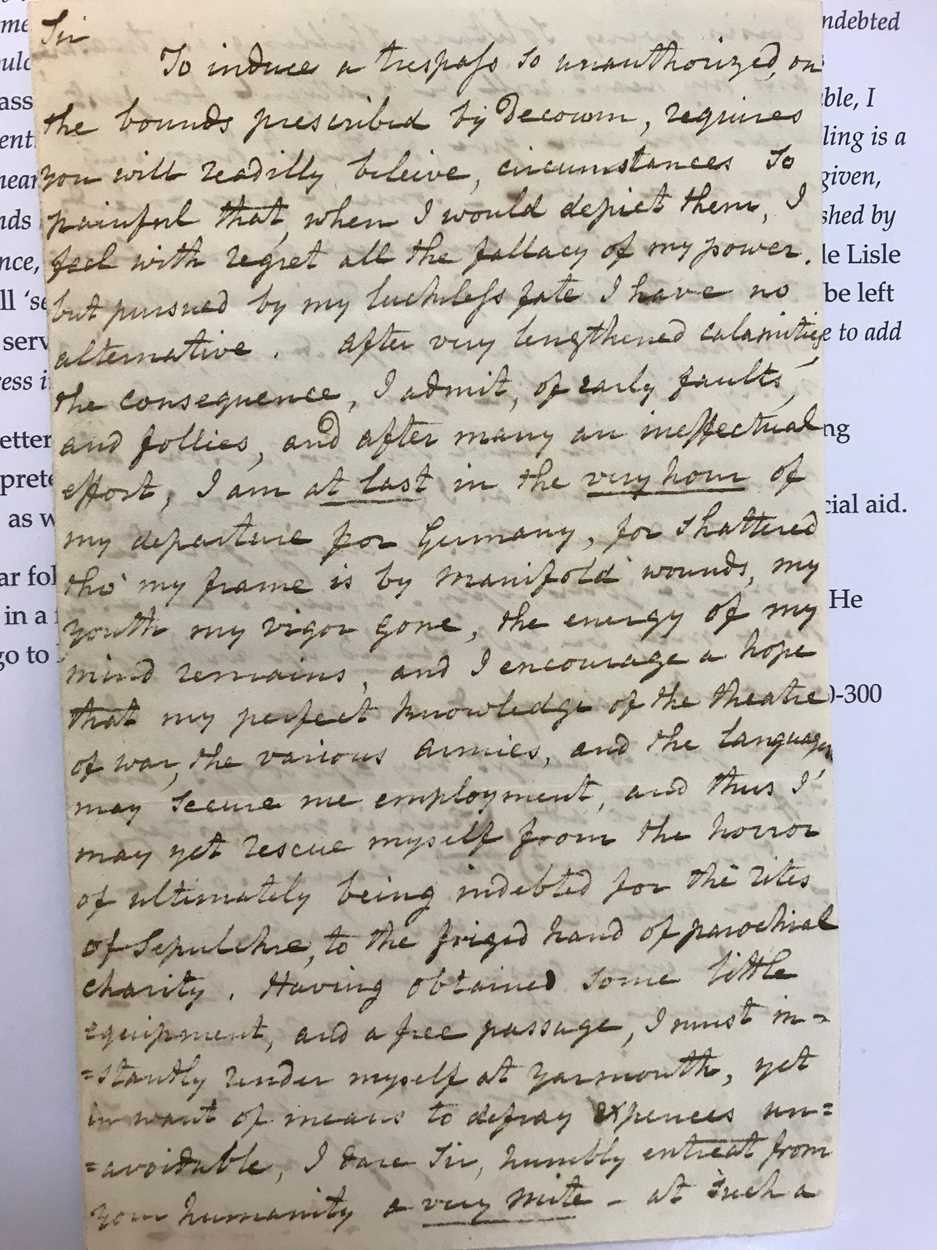 Sir
To induce a trespass so unauthorized, on
the bounds prescribed by Decorum, requires
you will readilly beleive, circumstances so
painful that, when I would depict them, I
feel with regret all the fallacy of my power.
but pursued by my luckless fate I have no
alternative. After very lengthened calamities
the consequence, I admit, of early faults,
and follies, and after many an ineffectual
effort, I am at last in the very hour of
my departure for Germany, for shattered
tho' my frame is by manifold wounds, my
youth my vigor gone, the energy of my
mind remains, and I encourage a hope
that my perfect knowledge of the theatre
of war, the various armies, and the languages
may secure me employment, and thus I
may yet rescue myself from the horror
of ultimately being indebted for the rites
of Sepulchre, to the friged hand of parochial
charity. Having obtained some little
equipment, and a free passage, I must in-
=stantly render myself at Yarmouth, yet
in want of means to defray expences un=
=avoidable, I dare Sir, humbly entreat from
your humanity a very mite - at such a
ndebted
ble, I
ling is a
given,
shed by
le Lisle
be left
e to add
ng
cial aid.
He
0-300
me
ould
ass
ent
near
nds
nce,
ll 'se
serv
ress i
etter
prete
as w
ar fol
in a
go to